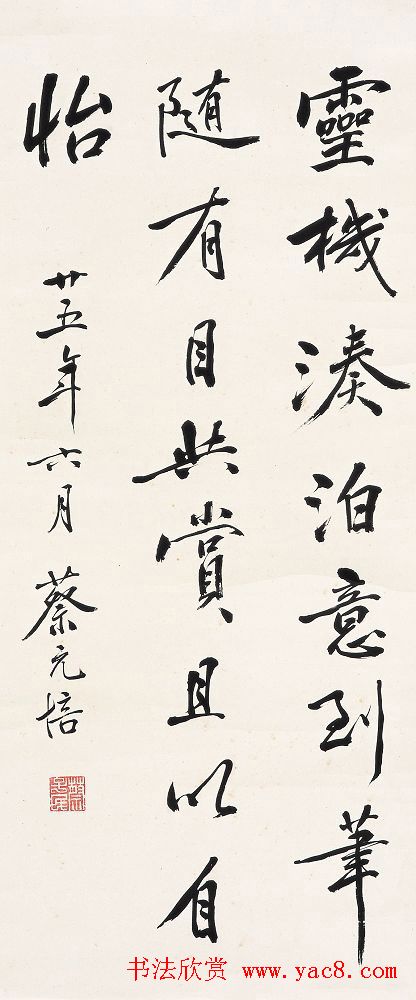 靈機湊泊意到筆
隨有目共賞且以自
怡
廿五年六月 蔡元培
书法欣赏 www.yac8.com